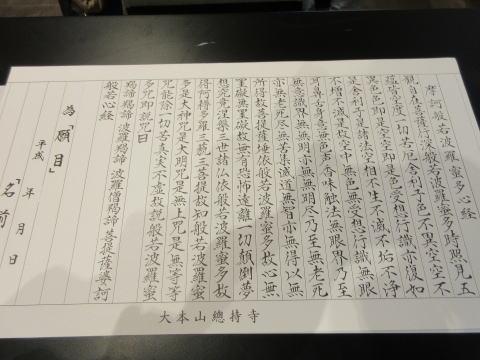 摩訶般若波羅蜜多心経
観自在菩薩行深般若波羅蜜多時照見五
蘊皆空度一切苦厄舎利子色不異空空不
異色色即是空空即是色受想行識亦復如
是舎利子是諸法空相不生不滅不垢不浄
不増不減是故空中無色無受想行識無眼
耳鼻舌身意無色声香味触法無眼界乃至
無意識界無無明亦無無明尽乃至無老死
亦無老死尽無苦集滅道無智亦無得以無
所得故菩提薩埵依般若波羅蜜多故心無
罣礙無罣礙故無有恐怖遠離一切顛倒夢
想究竟涅槃三世諸仏依般若波羅蜜多故
得阿耨多羅三藐三菩提故知般若波羅蜜
多是大神咒是大明咒是無上咒是無等等
咒能除一切苦真実不虚故説般若波羅蜜
多咒即説咒曰
羯諦羯諦 波羅羯諦 波羅僧羯諦 菩提薩婆訶
般若心経
為「願目」
平成 年 月 日
「名前」
大本山總持寺